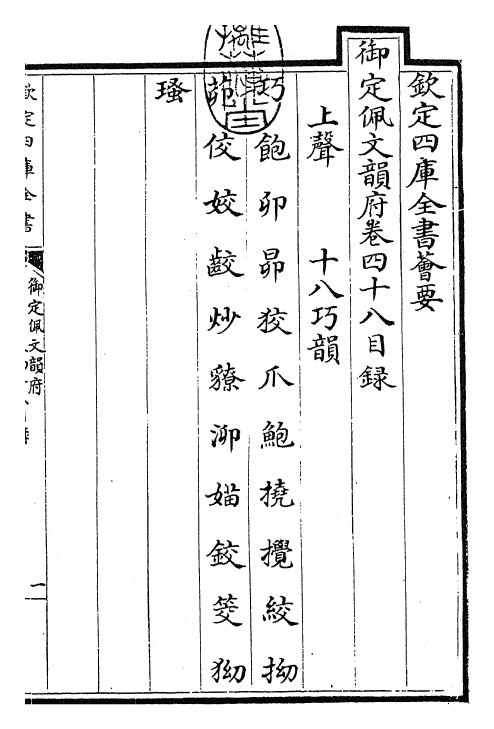 欽定四庫全書薈要
御定佩文韻府卷四十八目録
上聲 十八巧韻
巧飽卯昴狡爪鮑撓攪絞拗
茆佼姣齩炒獠泖媌鉸筊狕
瑵
欽定四庫全書
御定佩文韻府
一